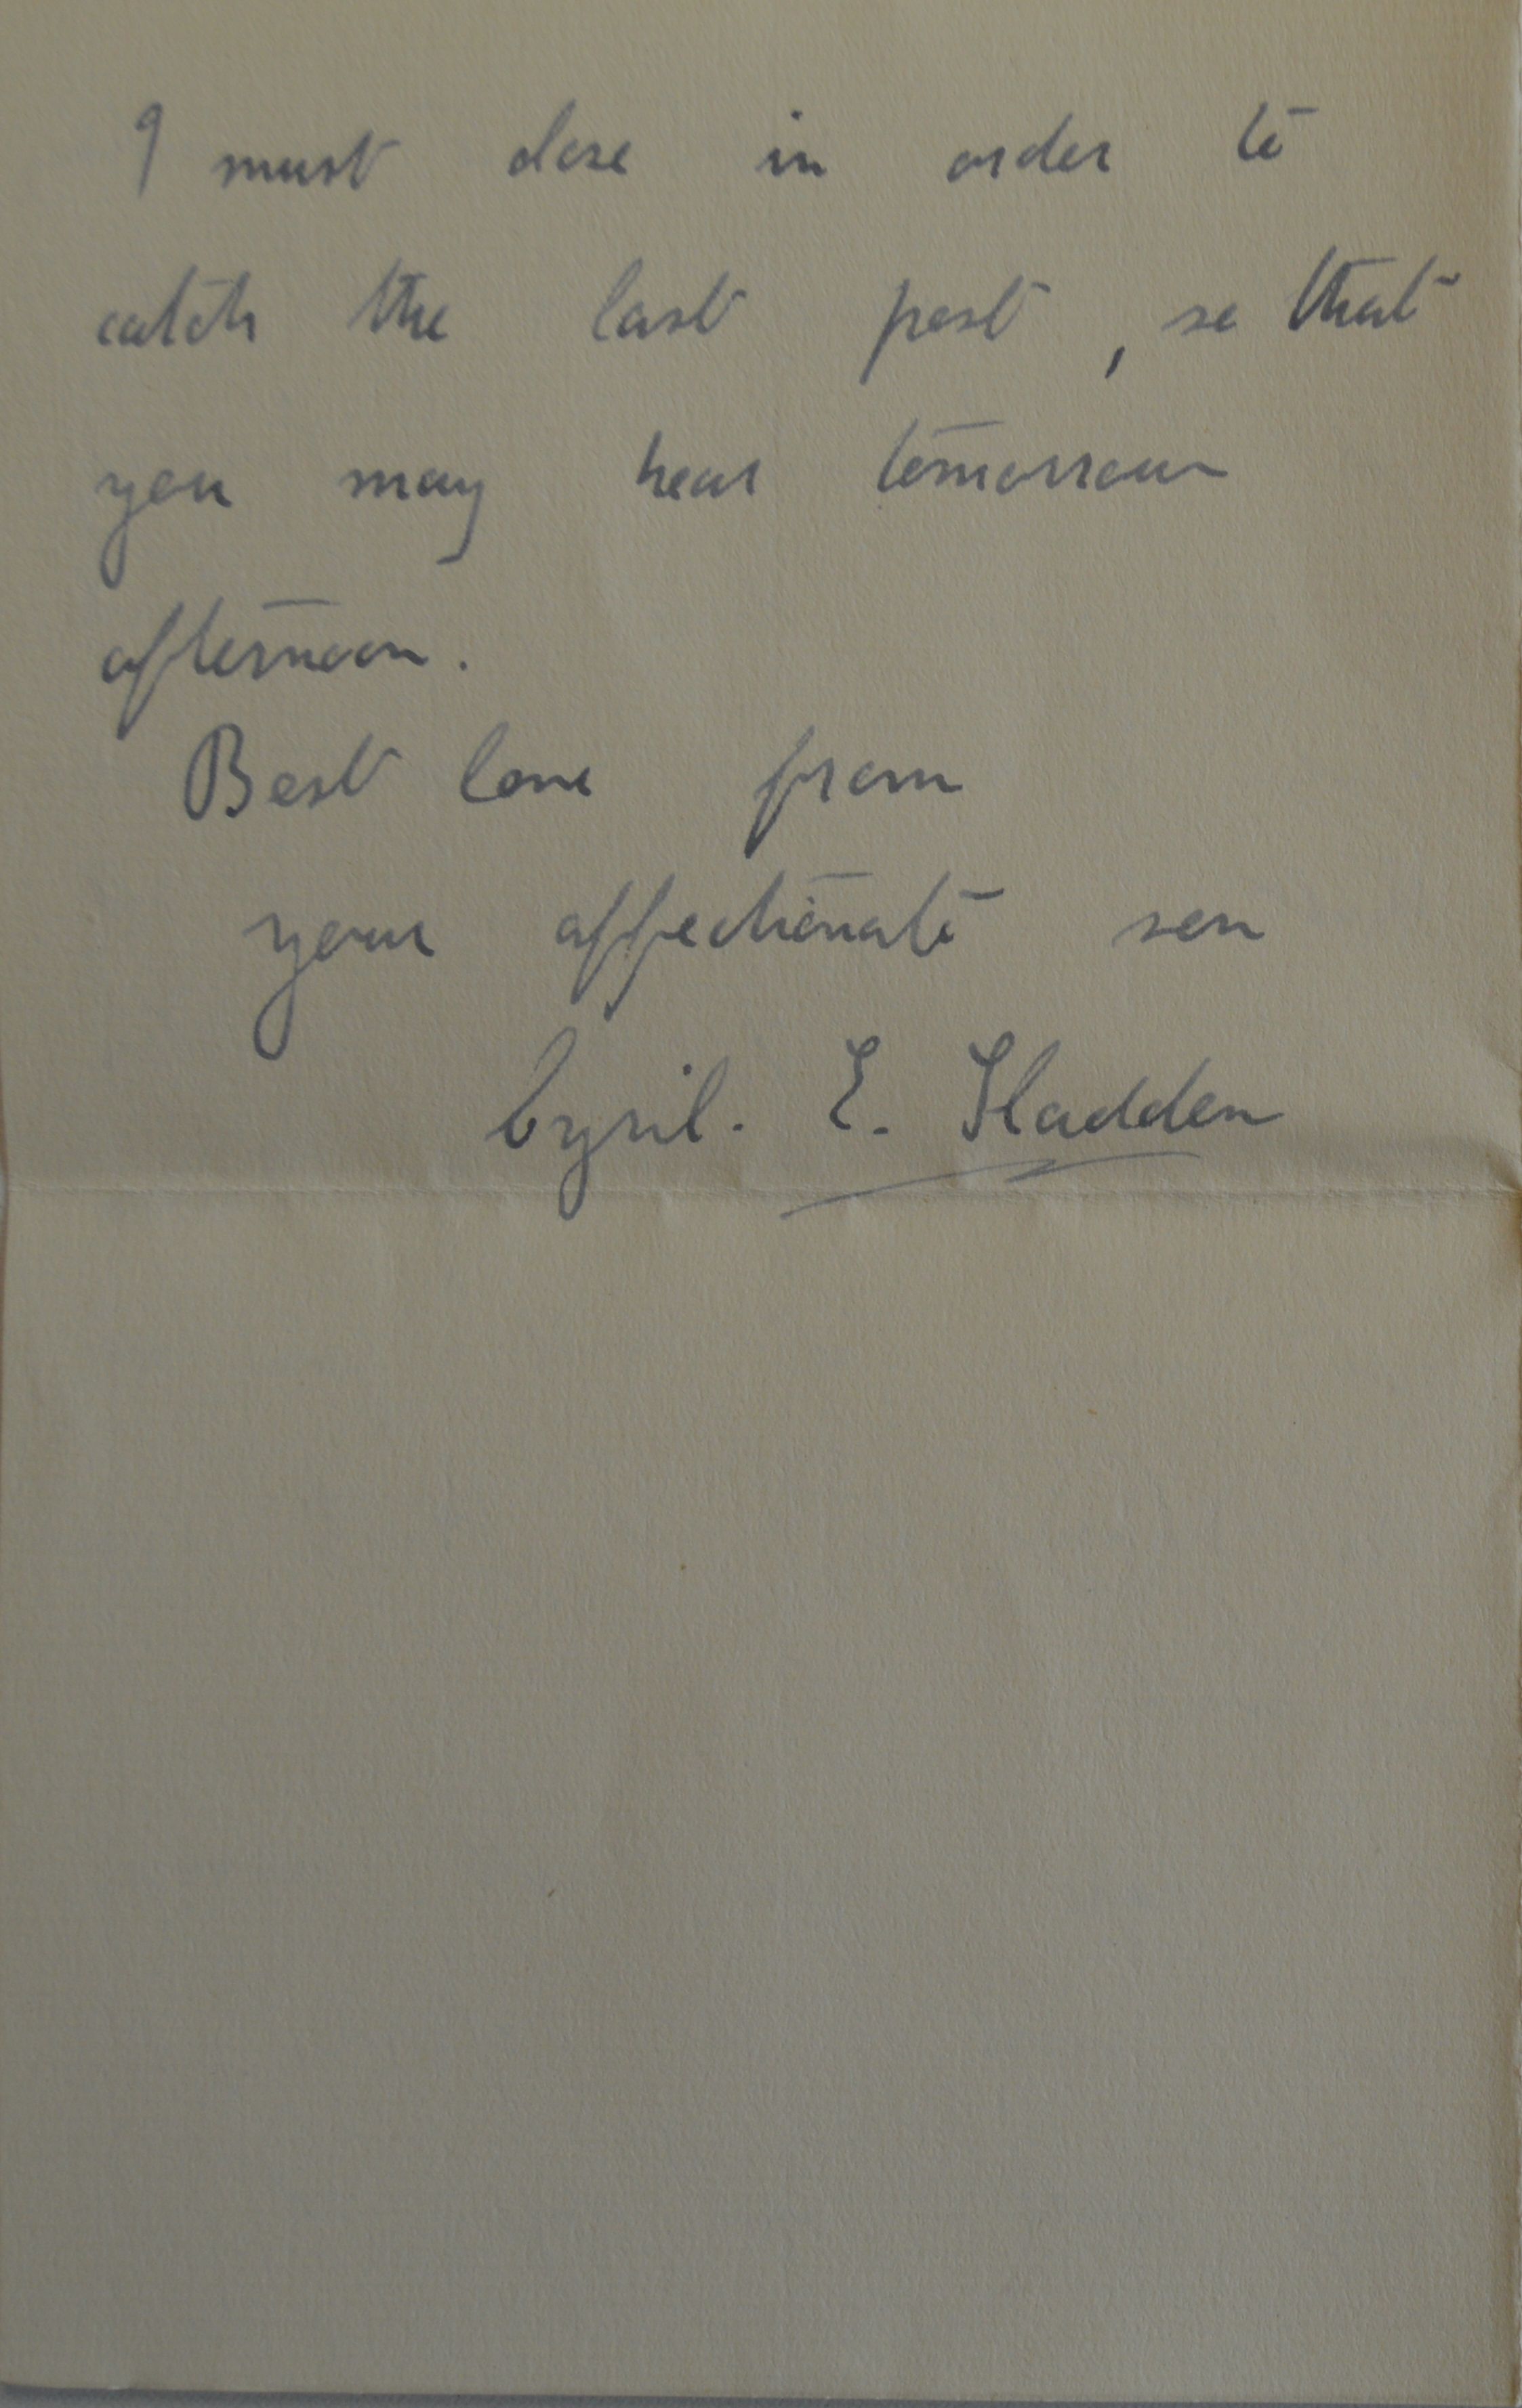 I must close in order to
catch the last post, so that
you may hear tomorrow
afternoon.
Best love from
your affectionate son
Cyril. E. Sladden